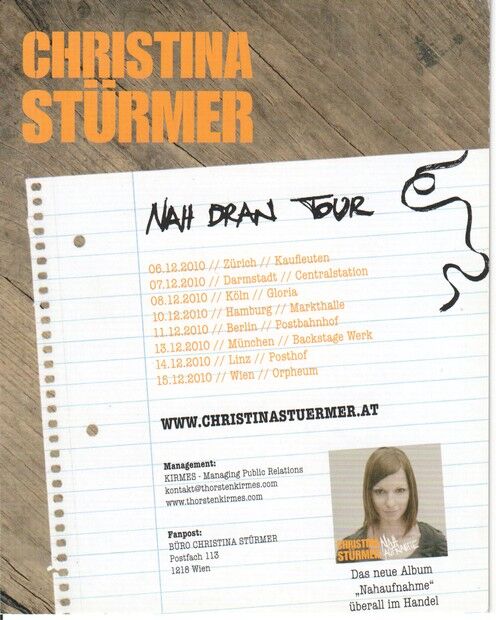 CHRISTINA
STÜRMER
NAH DRAN TOUR
06.12.2010 // Zürich // Kaufleuten
07.12.2010 // Darmstadt // Centralstation
08.12.2010 // Köln // Gloria
10.12.2010 // Hamburg // Markthalle
11.12.2010 // Berlin // Postbahnhof
13.12.2010 // München // Backstage Werk
14.12.2010 // Linz // Posthof
15.12.2010 // Wien // Orpheum
WWW.CHRISTINASTUERMER.AT
Management:
KIRMES - Managing Public Relations
kontakt@thorstenkirmes.com
www.thorstenkirmes.com
Fanpost:
BÜRO CHRISTINA STÜRMER
Postfach 113
1218 Wien
CHRISTINA
STÜRMER
NAHAUFNAHME
Das neue Album
„Nahaufnahme“
überall im Handel